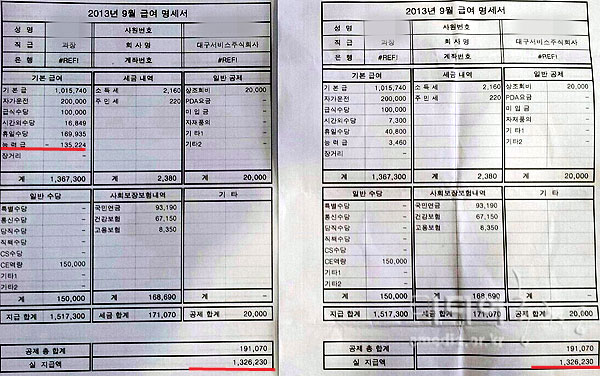 2013년 9월 급여 명세서
성 명 사원번호
직 급 과장 회 사 명 대구서비스주식회사
은 행 #REF! 계좌번호 #REF!
기본 급여 세금 내역 일반 공제
기 본 급 1,015,740 소 득 세 2,160 상조회비 20,000
자가운전 200,000 주 민 세 220 PDA요금 -
급식수당 100,000 미 입 금 -
시간외수당 16,849 자재품의 -
휴일수당 169,935 기 타1 -
능 력 급 - 135,224 기타2 -
장거리 -
계 1,367,300 계 2,380 계 20,000
일반 수당 사회보장보험내역 기 타
특별수당 - 국민연금 93,190
통신수당 - 건강보험 67,150
당직수당 - 고용보험 8,350
직책수당 -
CS수당 -
CE역량 150,000
기타1 -
기타2 -
계 150,000 계 168,690 계 -
지급 합계 1,517,300 세금 합계 171,070 공제 합계 20,000
공제 총 합계 191,070
실 지급액 1,326,230
2013년 9월 급여 명세서
성 명 사원번호
직 급 과장 회 사 명 대구서비스주식회사
은 행 #REF! 계좌번호 #REF!
기본 급여 세금 내역 일반 공제
기 본 급 1,015,740 소 득 세 2,160 상조회비 20,000
자가운전 200,000 주 민 세 220 PDA요금 -
급식수당 100,000 미 입 금 -
시간외수당 7,300 자재품의 -
휴일수당 40,800 기 타1 -
능 력 급 3,460 기타2 -
장거리 -
계 1,367,300 계 2,380 계 20,000
일반 수당 사회보장보험내역 기 타
특별수당 - 국민연금 93,190
통신수당 - 건강보험 67,150
당직수당 - 고용보험 8,350
직책수당 -
CS수당 -
CE역량 150,000
기타1 -
기타2 -
계 150,000 계 168,690 계 -
지급 합계 1,517,300 세금 합계 171,070 공제 합계 20,000
공제 총 합계 191,070
실 지급액 1,326,230